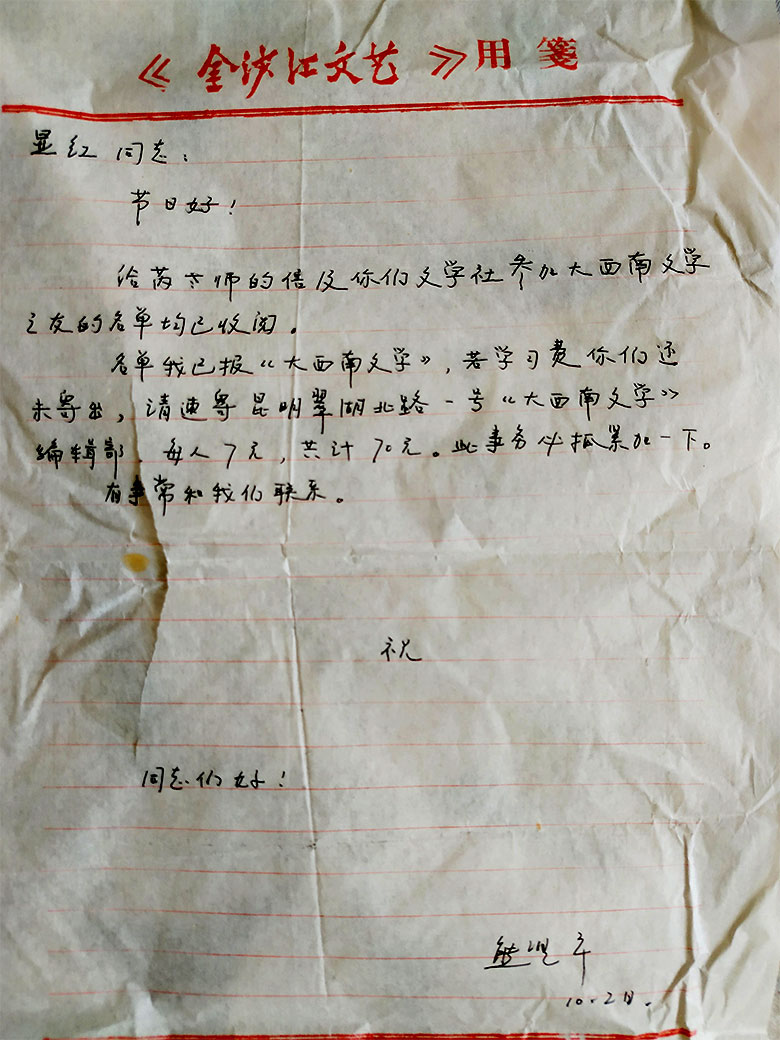 《金沙江文艺》用笺
显红同志:
节日好!
给芮老师的信及你们文学社参加大西南文学
之友的名单均已收阅。
名单我已报《大西南文学》,若学习费你们还
未寄出,请速寄昆明翠湖北路一号《大西南文学》
编辑部,每人7元,共计70元。此事务必抓紧加一下。
有事常和我们联系。
祝
同志们好!
熊
10.2日.